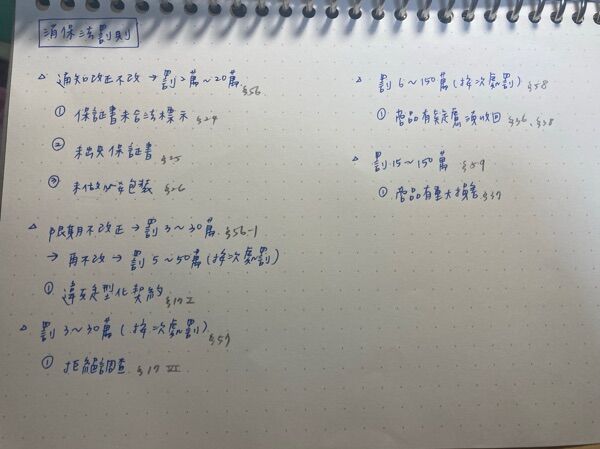 消保法罰則
△ 通知改正不改 → 罰2萬~20萬 §56
① 保証書未合法標示 §24
② 未出具保証書 §25
③ 未做必要包裝 §26
△ 限期不改正 → 罰3~30萬 §56-1
→ 再不改 → 罰5~50萬(按次處罰)
① 違反定型化契約 §17 I
△ 罰3~30萬(按次處罰) §57
① 拒絕調查 §17 VI
△ 罰6~150萬(按次處罰) §58
① 商品有疑慮須收回 §36、§38
△ 罰15~150萬 §59
① 商品有重大損害 §37